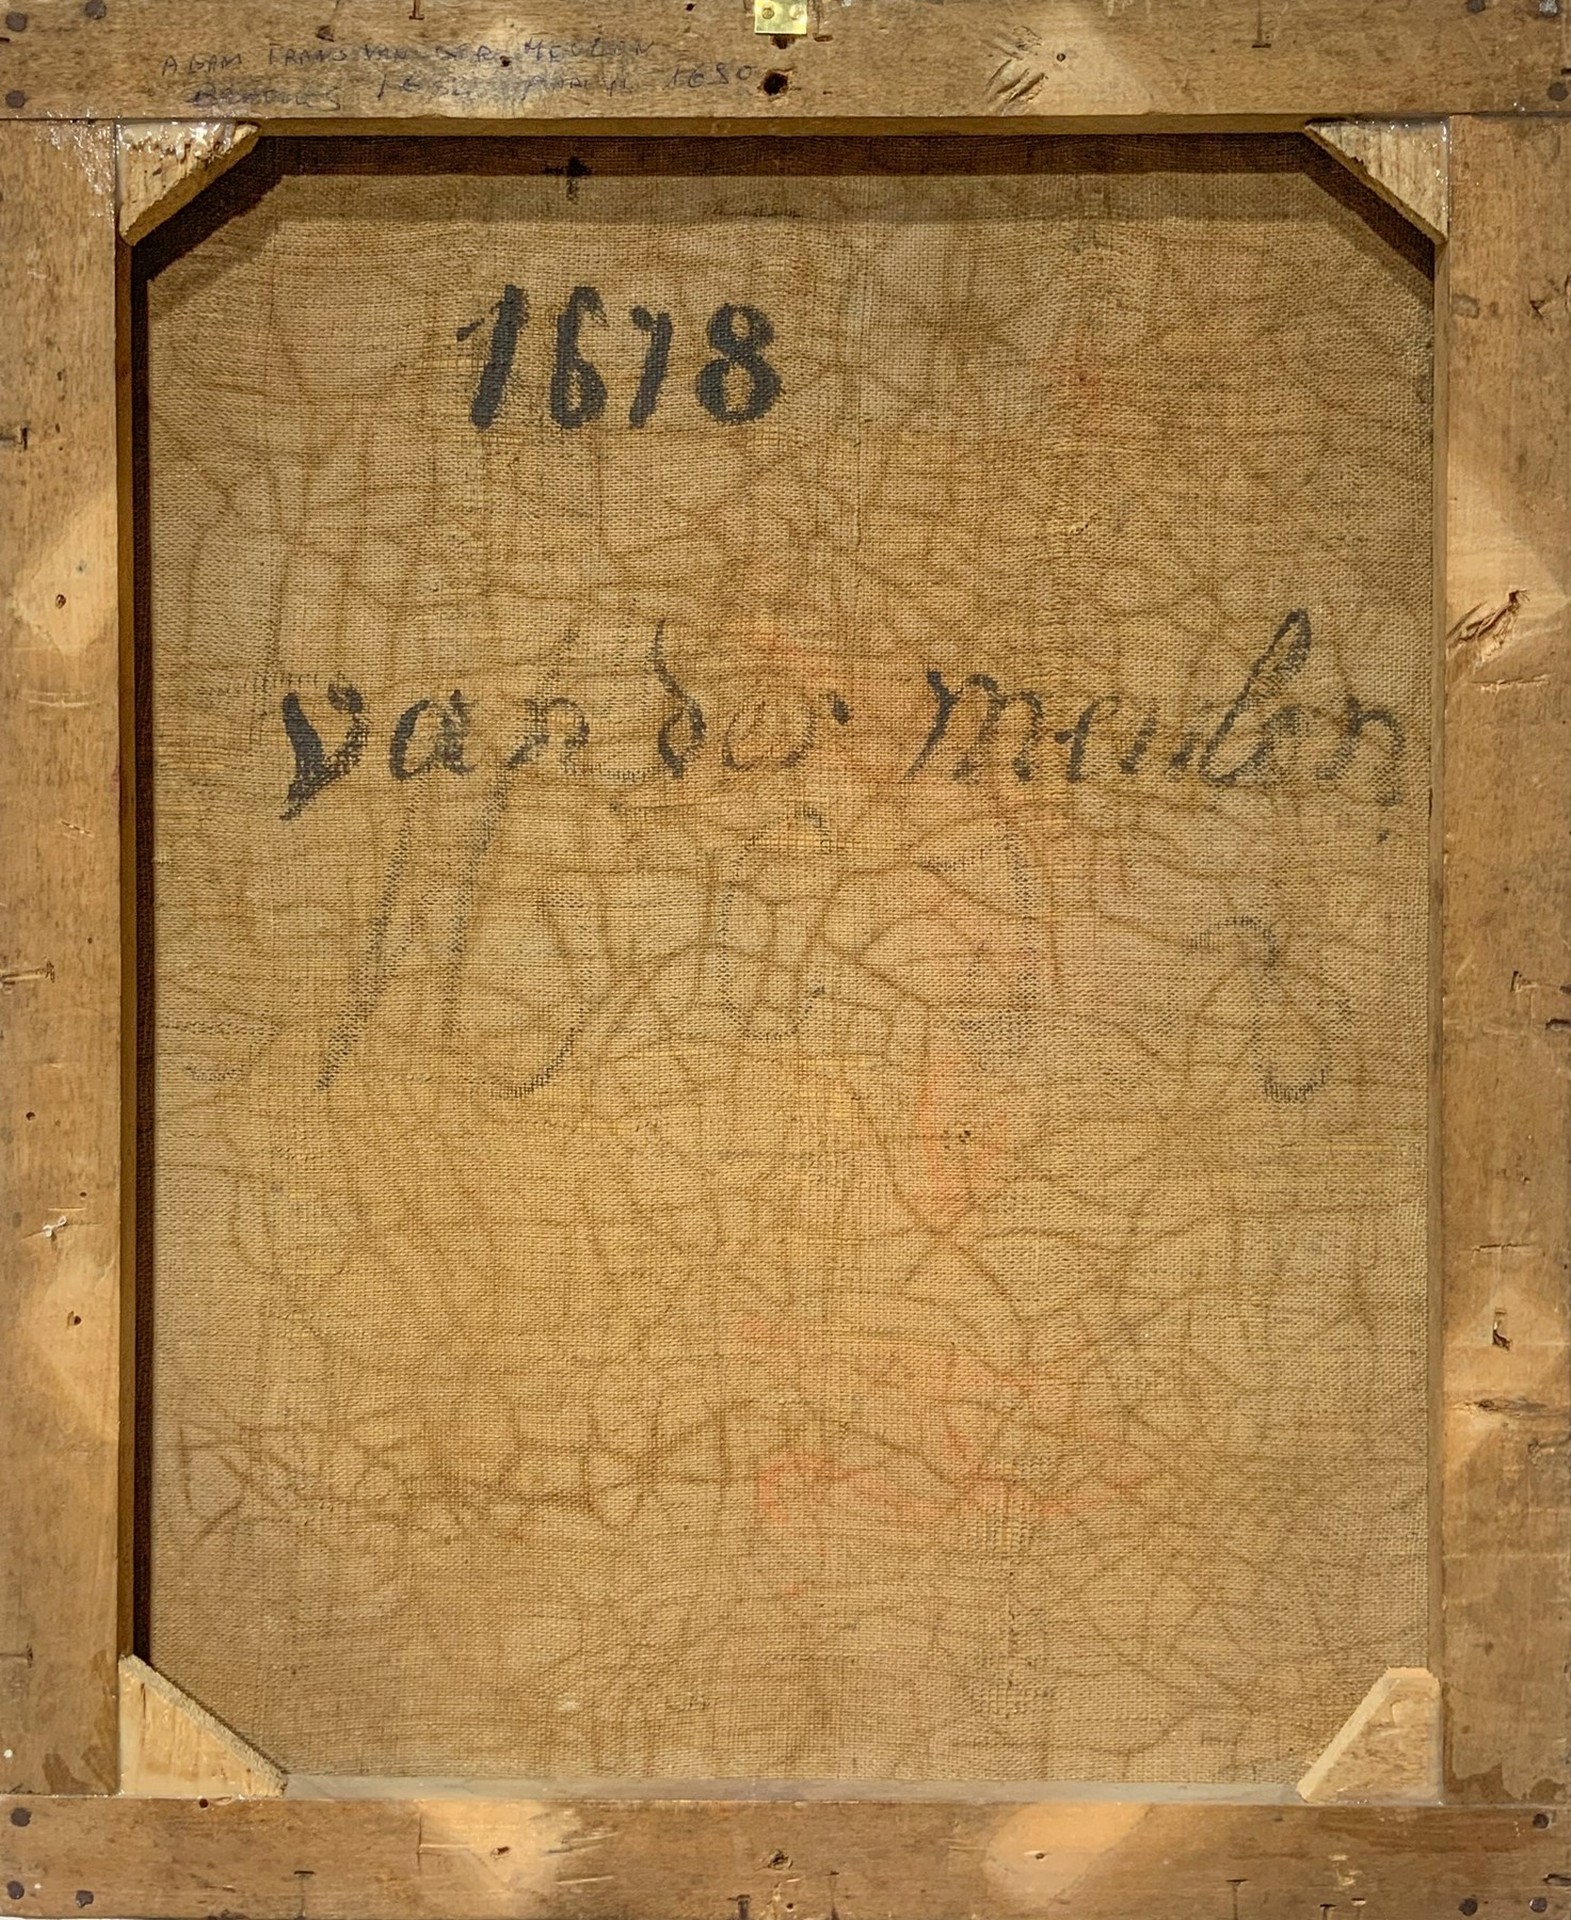 ADAM FRANS VAN DER MEULEN
1690
1678
van der meulen
1678